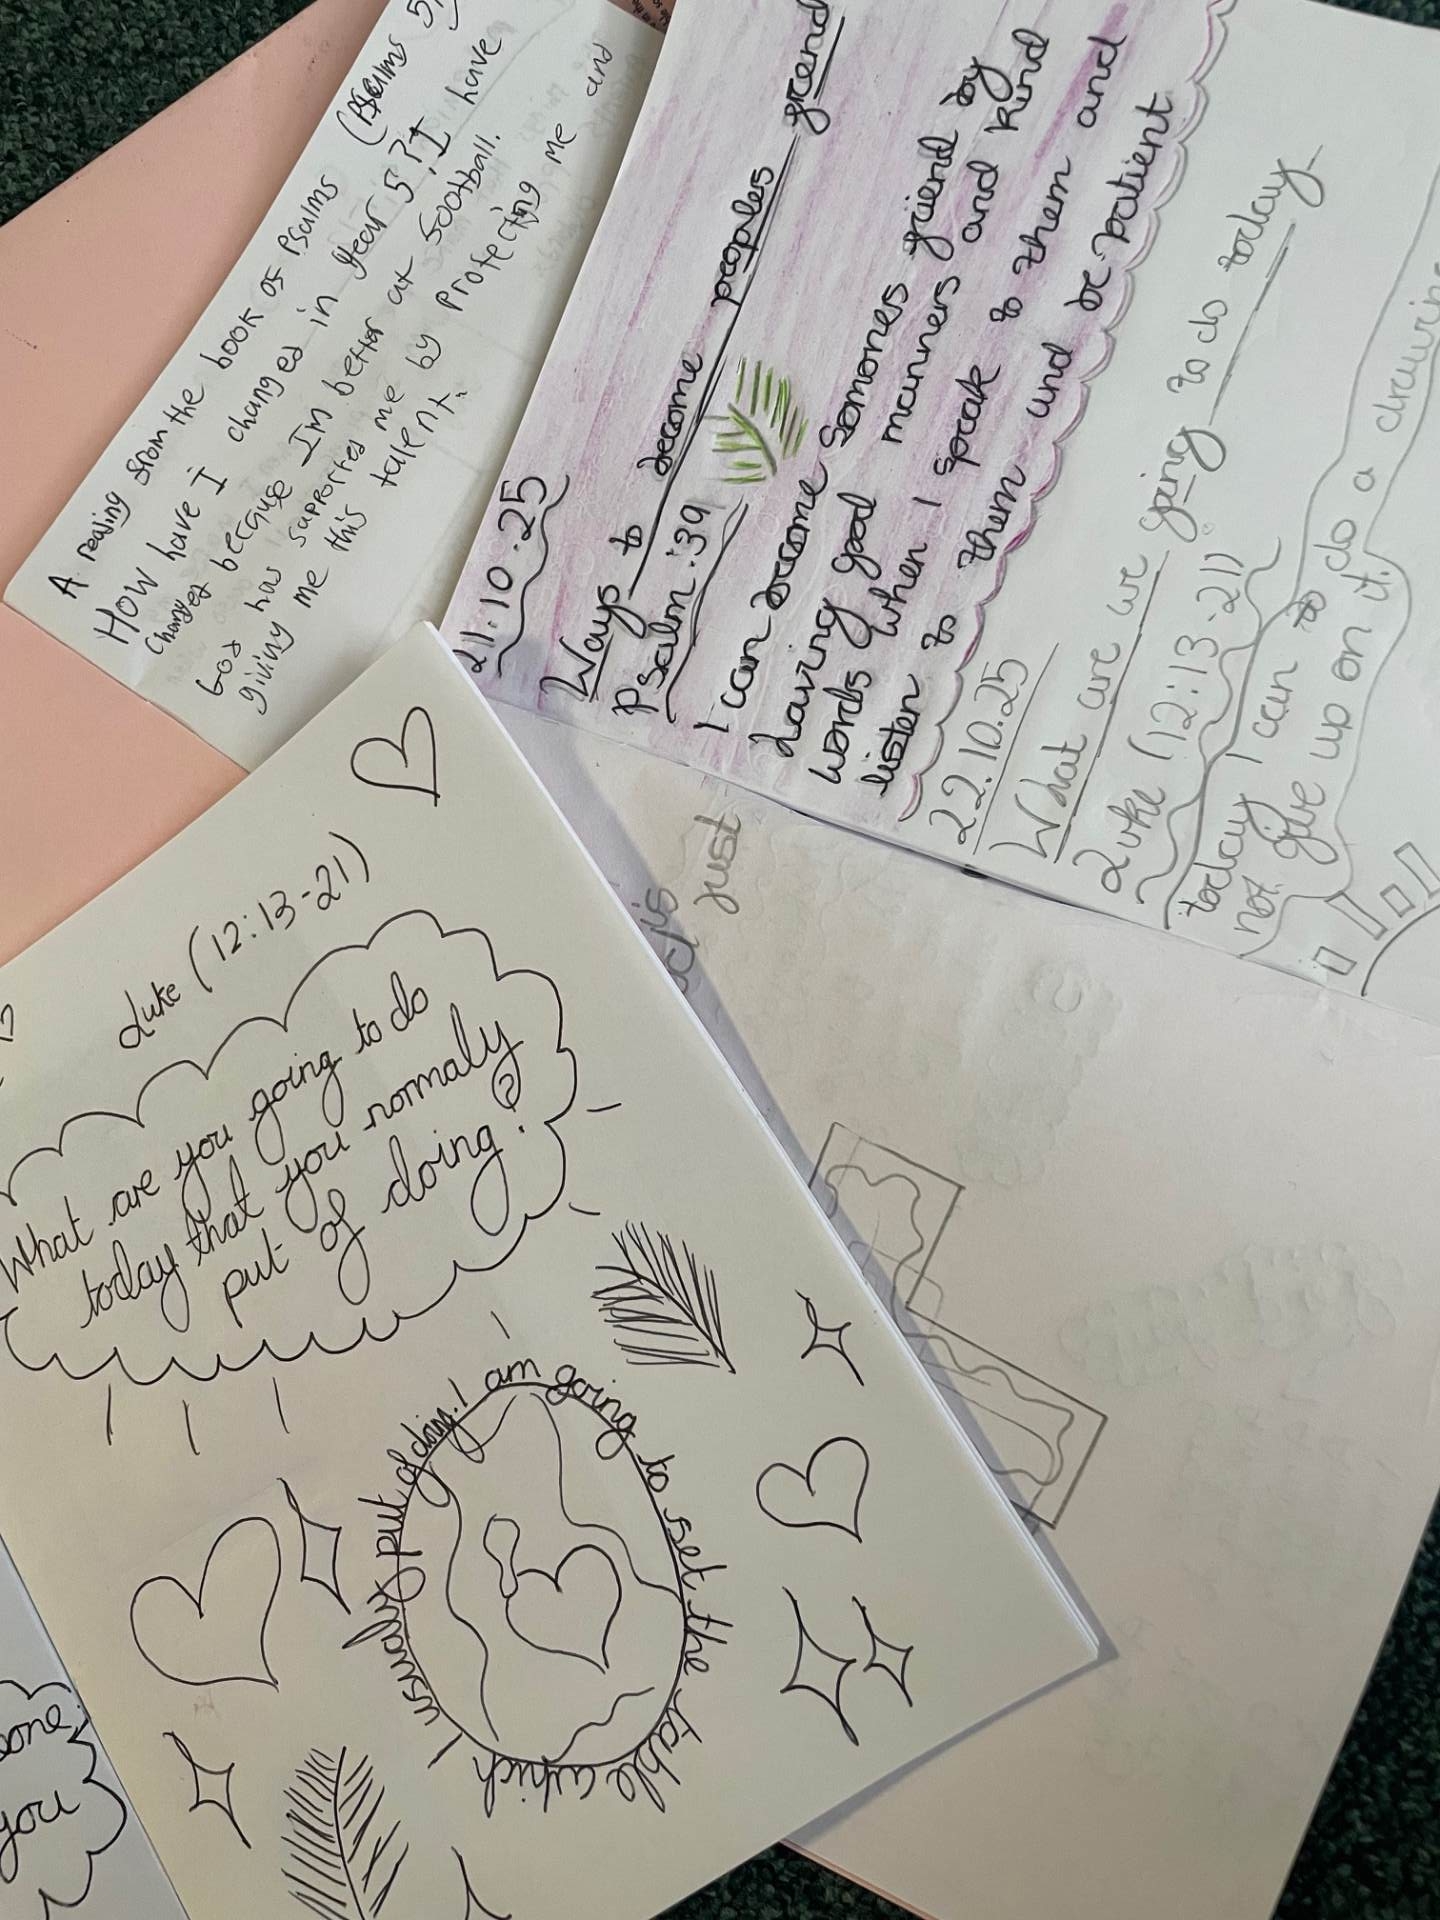 A reading from the book of Psalms (Psalms 51
How have I changed in year 5? I have
changed because Im better at football.
God has supported me by protecting me and
giving me this talent.
21.10.25
Ways to become peoples friend
Psalm:39
I can become somones friend by
having good manners and kind
words when I speak to them and
listen to them and be patient
22.10.25
What are we going to do today
Luke (12:13-21)
today I can to do a drawing
not give up on it.
just
Luke (12:13-21)
What are you going to do
today that you normaly
put of doing?
I am going to set the table which I usually put of doing.
you